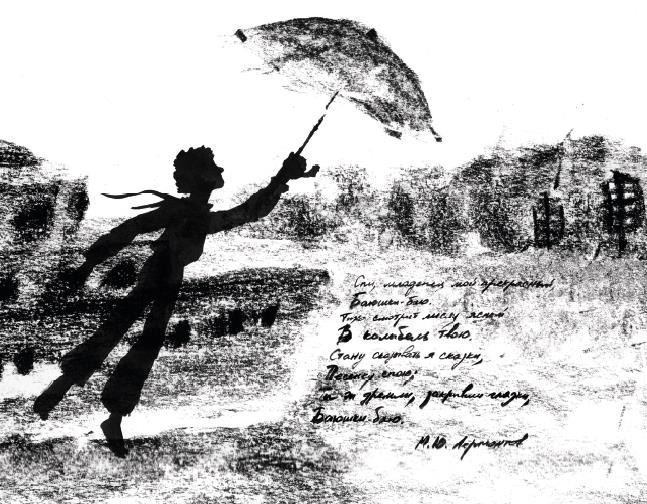 Спи, младенец мой прекрасный,
Баюшки-баю.
Тихо смотрит месяц ясный
В колыбель твою.
Стану сказывать я сказки,
Песенку спою;
Ты ж дремли, закрывши глазки,
Баюшки-баю.
М.Ю. Лермонтов